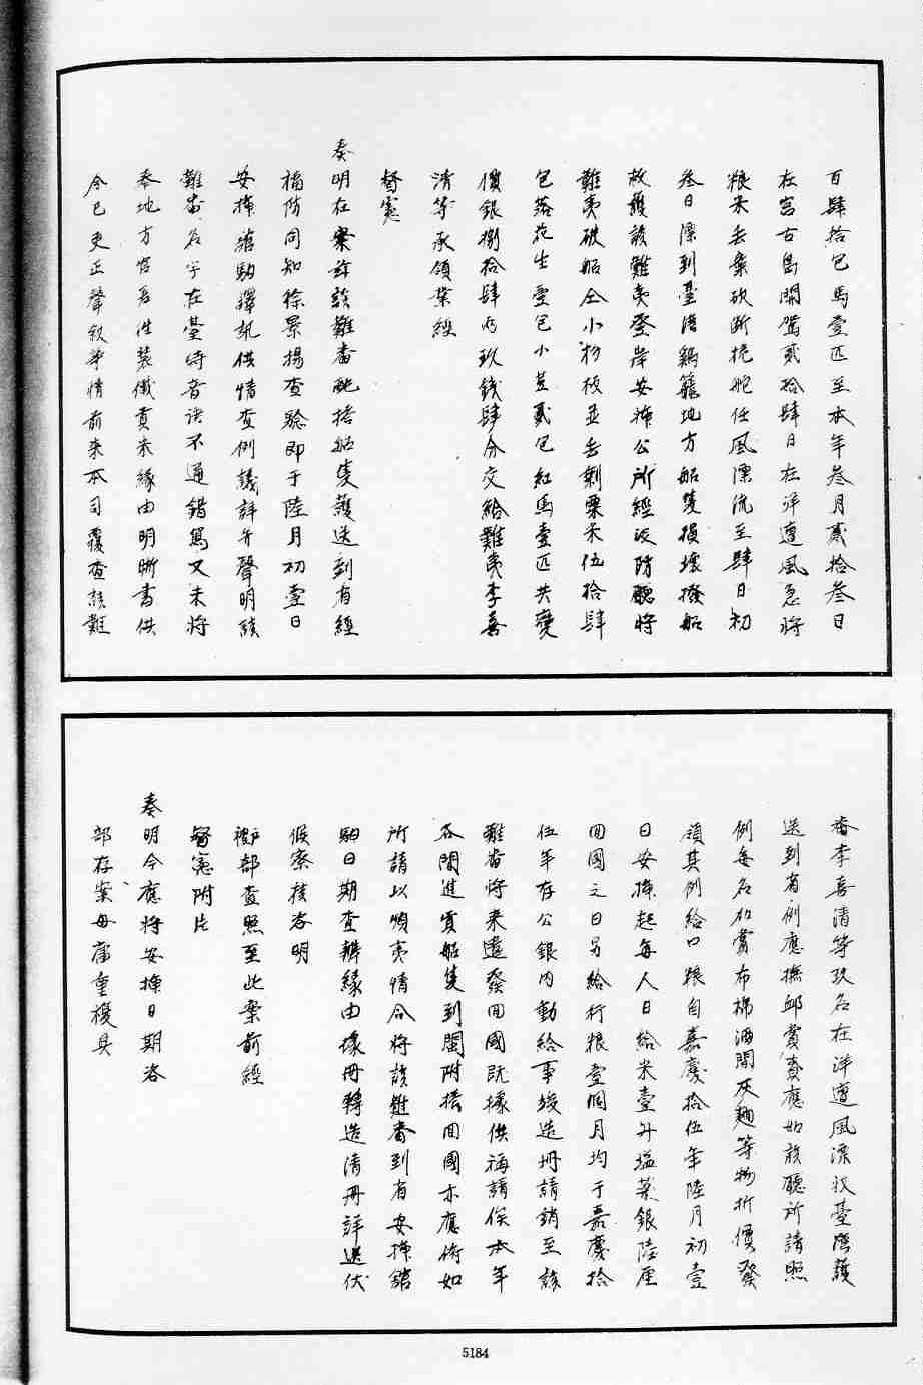 百肆拾包馬壹匹至本年叁月貳拾叁日
在宮古島開駕貳拾肆日在洋遭風急將
粮米丟棄砍斷桅舵任風漂流至肆日初
叁日漂到臺湾鷄籠地方船隻損壞撥船
救護該難夷登岸安揷公所經淡防廳將
難夷破船仝小杉板並丟剩粟米伍拾肆
包落花生壹包小荳貳包紅馬壹匹共變
價銀捌拾肆両玖錢肆分交給難夷李喜
清等承領業經
督憲
奏明在案茲該難番配搭船隻護送到省經
福防同知徐景揚查驗即于陸月初壹日
安揷舘馹譯訊供情查例議詳并聲明該
難番名字在臺時音语不通錯寫又未將
奉地方官差往装儎貢米緣由明晰書供
今已更正聲叙等情前来本司覆查該難
番李喜清等玖名在洋遭風漂収臺湾護
送到省例應撫邮賞賚應如該廳所請照
例每名加賞布棉酒開灰麺等物折價發
領其例給口粮自嘉慶拾伍年陸月初壹
日安揷起每人日給米壹升塩菜銀陸厘
回國之日另給行粮壹個月均于嘉慶拾
伍年存公銀內動給事竣造冊請銷至該
難番將来遣發回國既據供稱請俟本年
各閒進貢船隻到閩附搭回國亦應俯如
所請以順夷情合將該難番到省安揷舘
馹日期查辦緣由據冊轉造清冊詳送伏
候察核咨明
禮部查照至此案前經
督憲附片
奏明今應將安揷日期咨
部存案毋庸重複具
5184